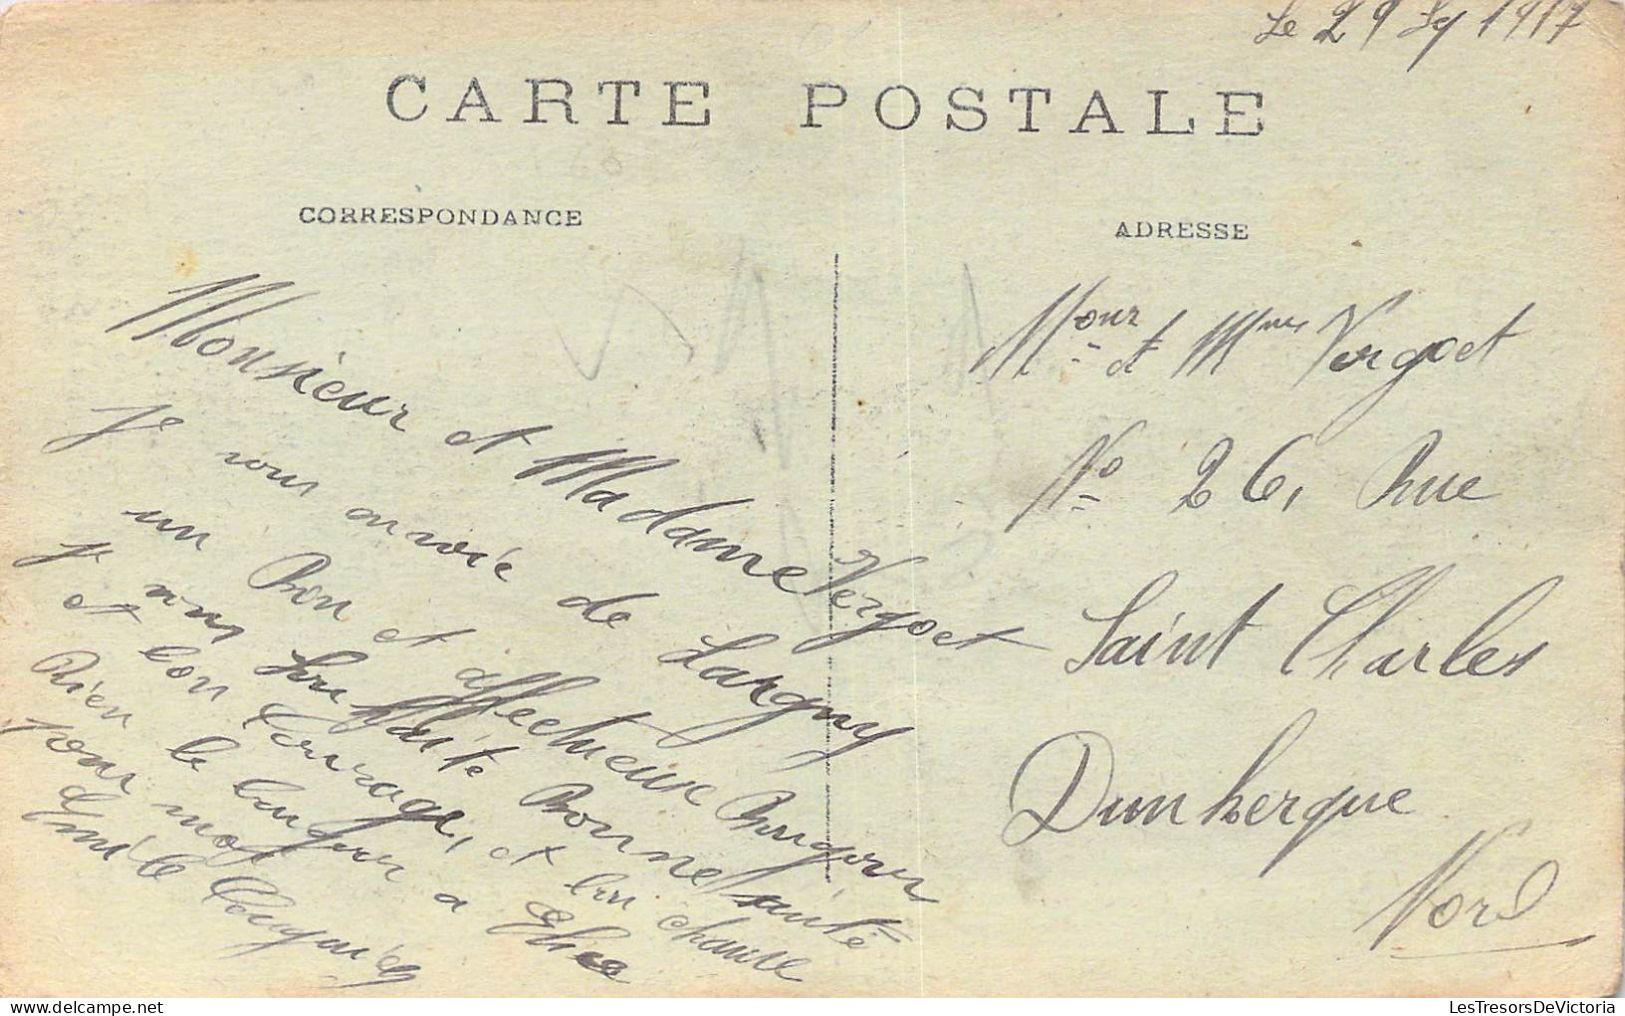 Le 29 1917
CARTE POSTALE
CORRESPONDANCE
ADRESSE
Monsieur et Madame Vergoet
je vous envoie de Largny
un Bon et affectueux Bonjour
je vous souhaite Bonne santé
et bon Courage, et bon chance
Rien le bonjour a Elise
pour moi
Emile
Mour et Mme Vergoet
No 26, Rue
Saint Charles
Dunkerque
Nord
LesTresorsDeVictoria